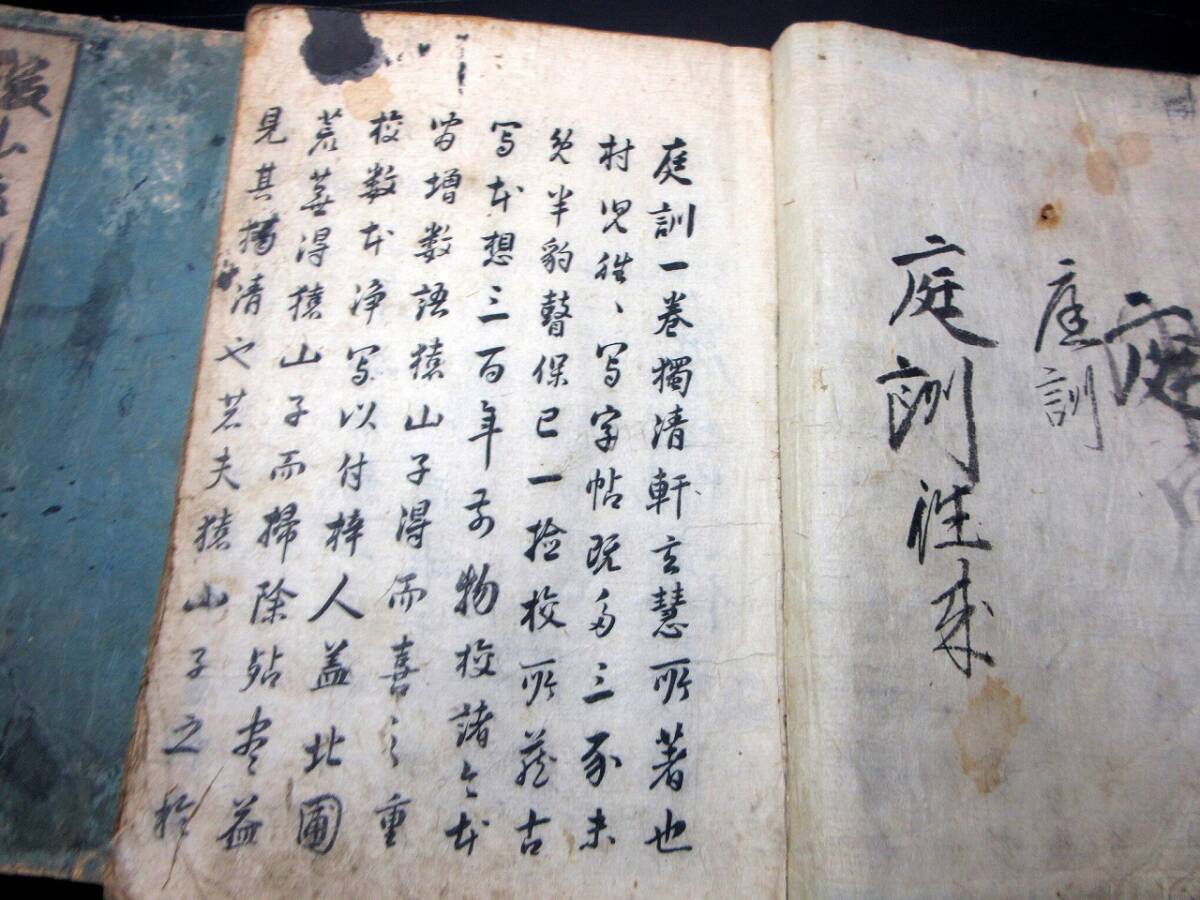 庭
庭訓
庭訓往来
庭訓一巻獨清軒玄慧所著也
村児往〻写字帖既多三豕未
免半豹瞽保已一撿校所蔵古
写本想三百年前物校諸今本
宵増数語猿山子得而喜之重
校数本浄写以付梓人盖北圃
荒蕪得猿山子而掃除殆尽益
見其獨清也若夫猿山子之於